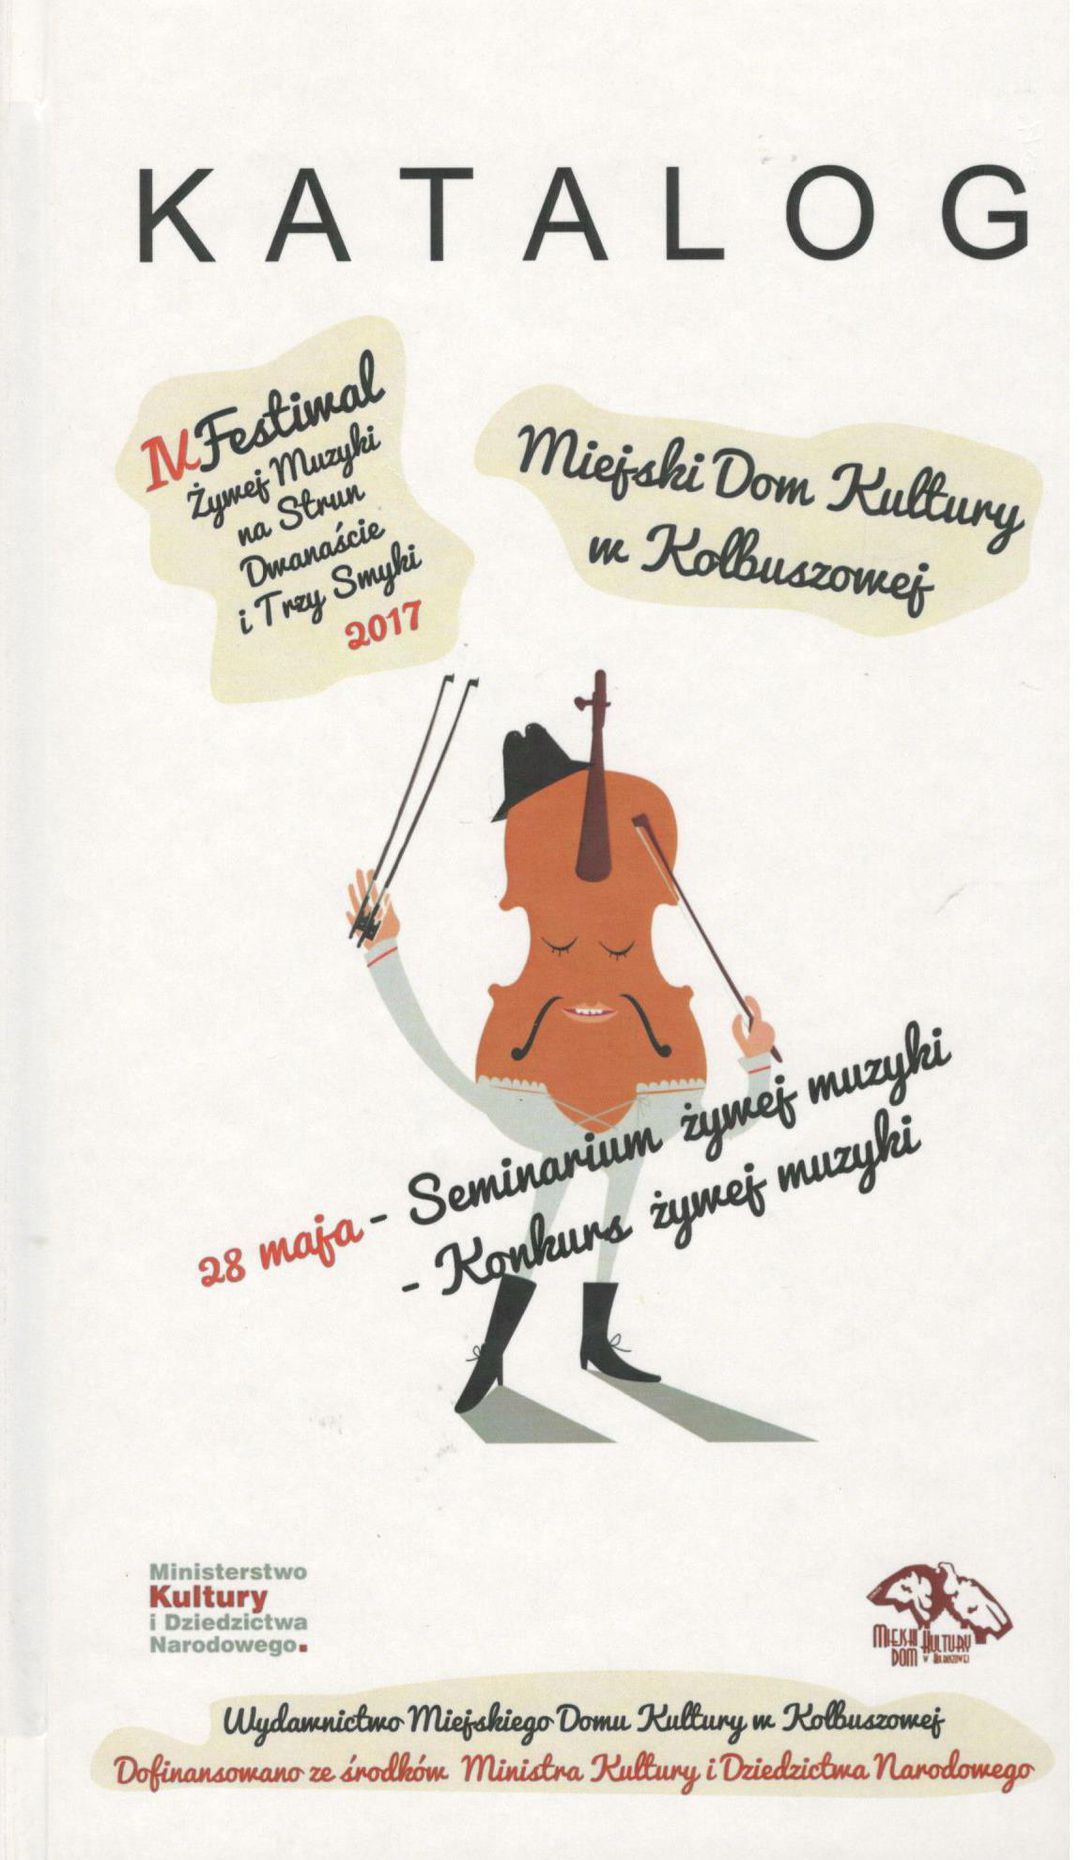 KATALOG
IV Festiwal
Żywej Muzyki
na Strun
Dwanaście
i Trzy Smyki
2017
Miejski Dom Kultury
w Kolbuszowej
28 maja - Seminarium żywej muzyki
- Konkurs żywej muzyki
Ministerstwo
Kultury
i Dziedzictwa
Narodowego.
MIEJSKI KULTURY
DOM W KOLBUSZOWEJ
Wydawnictwo Miejskiego Domu Kultury w Kolbuszowej
Dofinansowano ze środków Ministra Kultury i Dziedzictwa Narodowego